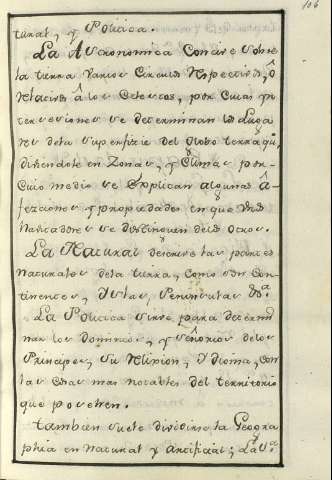 106
tural, y Politica.
La Astronomica Concive sobre
la tierra varios Circulos respectivos, ô
relativos â los Celestes, por cuias yn
tersesiones se determinan los Luga
res de la superfizie del Globo terraqūo,
dividiendole en Zonas, y Climas por
cuio medio se explican algunas â-
fezciones y propiedades en que unos
havitadores se distinguen de los otros.
La Natural descrive las partes
naturales de la tierra, como son Con
tinentes, Yslas, Peninsulas &a.
La Politica sirve para determi
nar los dominios, y señorios de los
Principes, su Religion, Ydioma, con
las cosas mas notables del territorio
que posehen.
tambien suele dividirse la Geogra
phia en Natural y Artificial; La Na